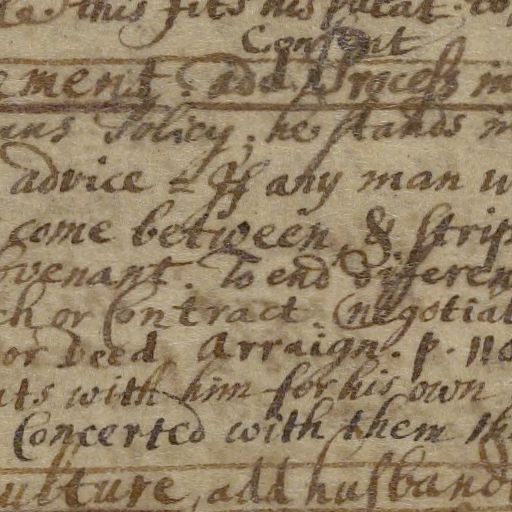 this fits his
Consent
ement. add Process in
uns Policy; he stands
advice = If any man
come between & strip
ovenant. To end Differen
ch or Contract Negotiat
or Deed Arraign. p. 110
ts with him for his own
Concerted with them
ulture, add husband